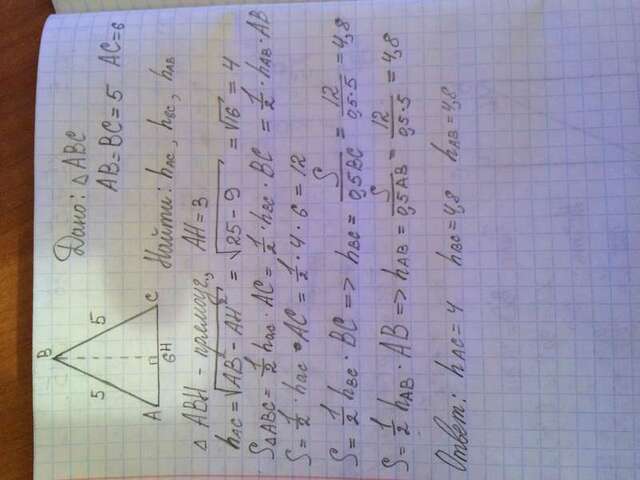 B
5 5
A 6 H C
Дано: △ABC
AB=BC=5 AC=6
Найти: hAC, hBC, hAB
△ ABH - прямоуг, AH=3
hAC=√AB²-AH² = √25-9 = √16 = 4
S△ABC= 1/2 hAC · AC = 1/2 · hBC · BC = 1/2 · hAB · AB
S= 1/2 · hAC · AC = 1/2 · 4 · 6 = 12
S= 1/2 hBC · BC => hBC = S/0,5BC = 12/0,5·5 =4,8
S= 1/2 hAB · AB => hAB = S/0,5AB = 12/0,5·5 =4,8
Ответ: hAC=4 hBC=4,8 hAB=4,8